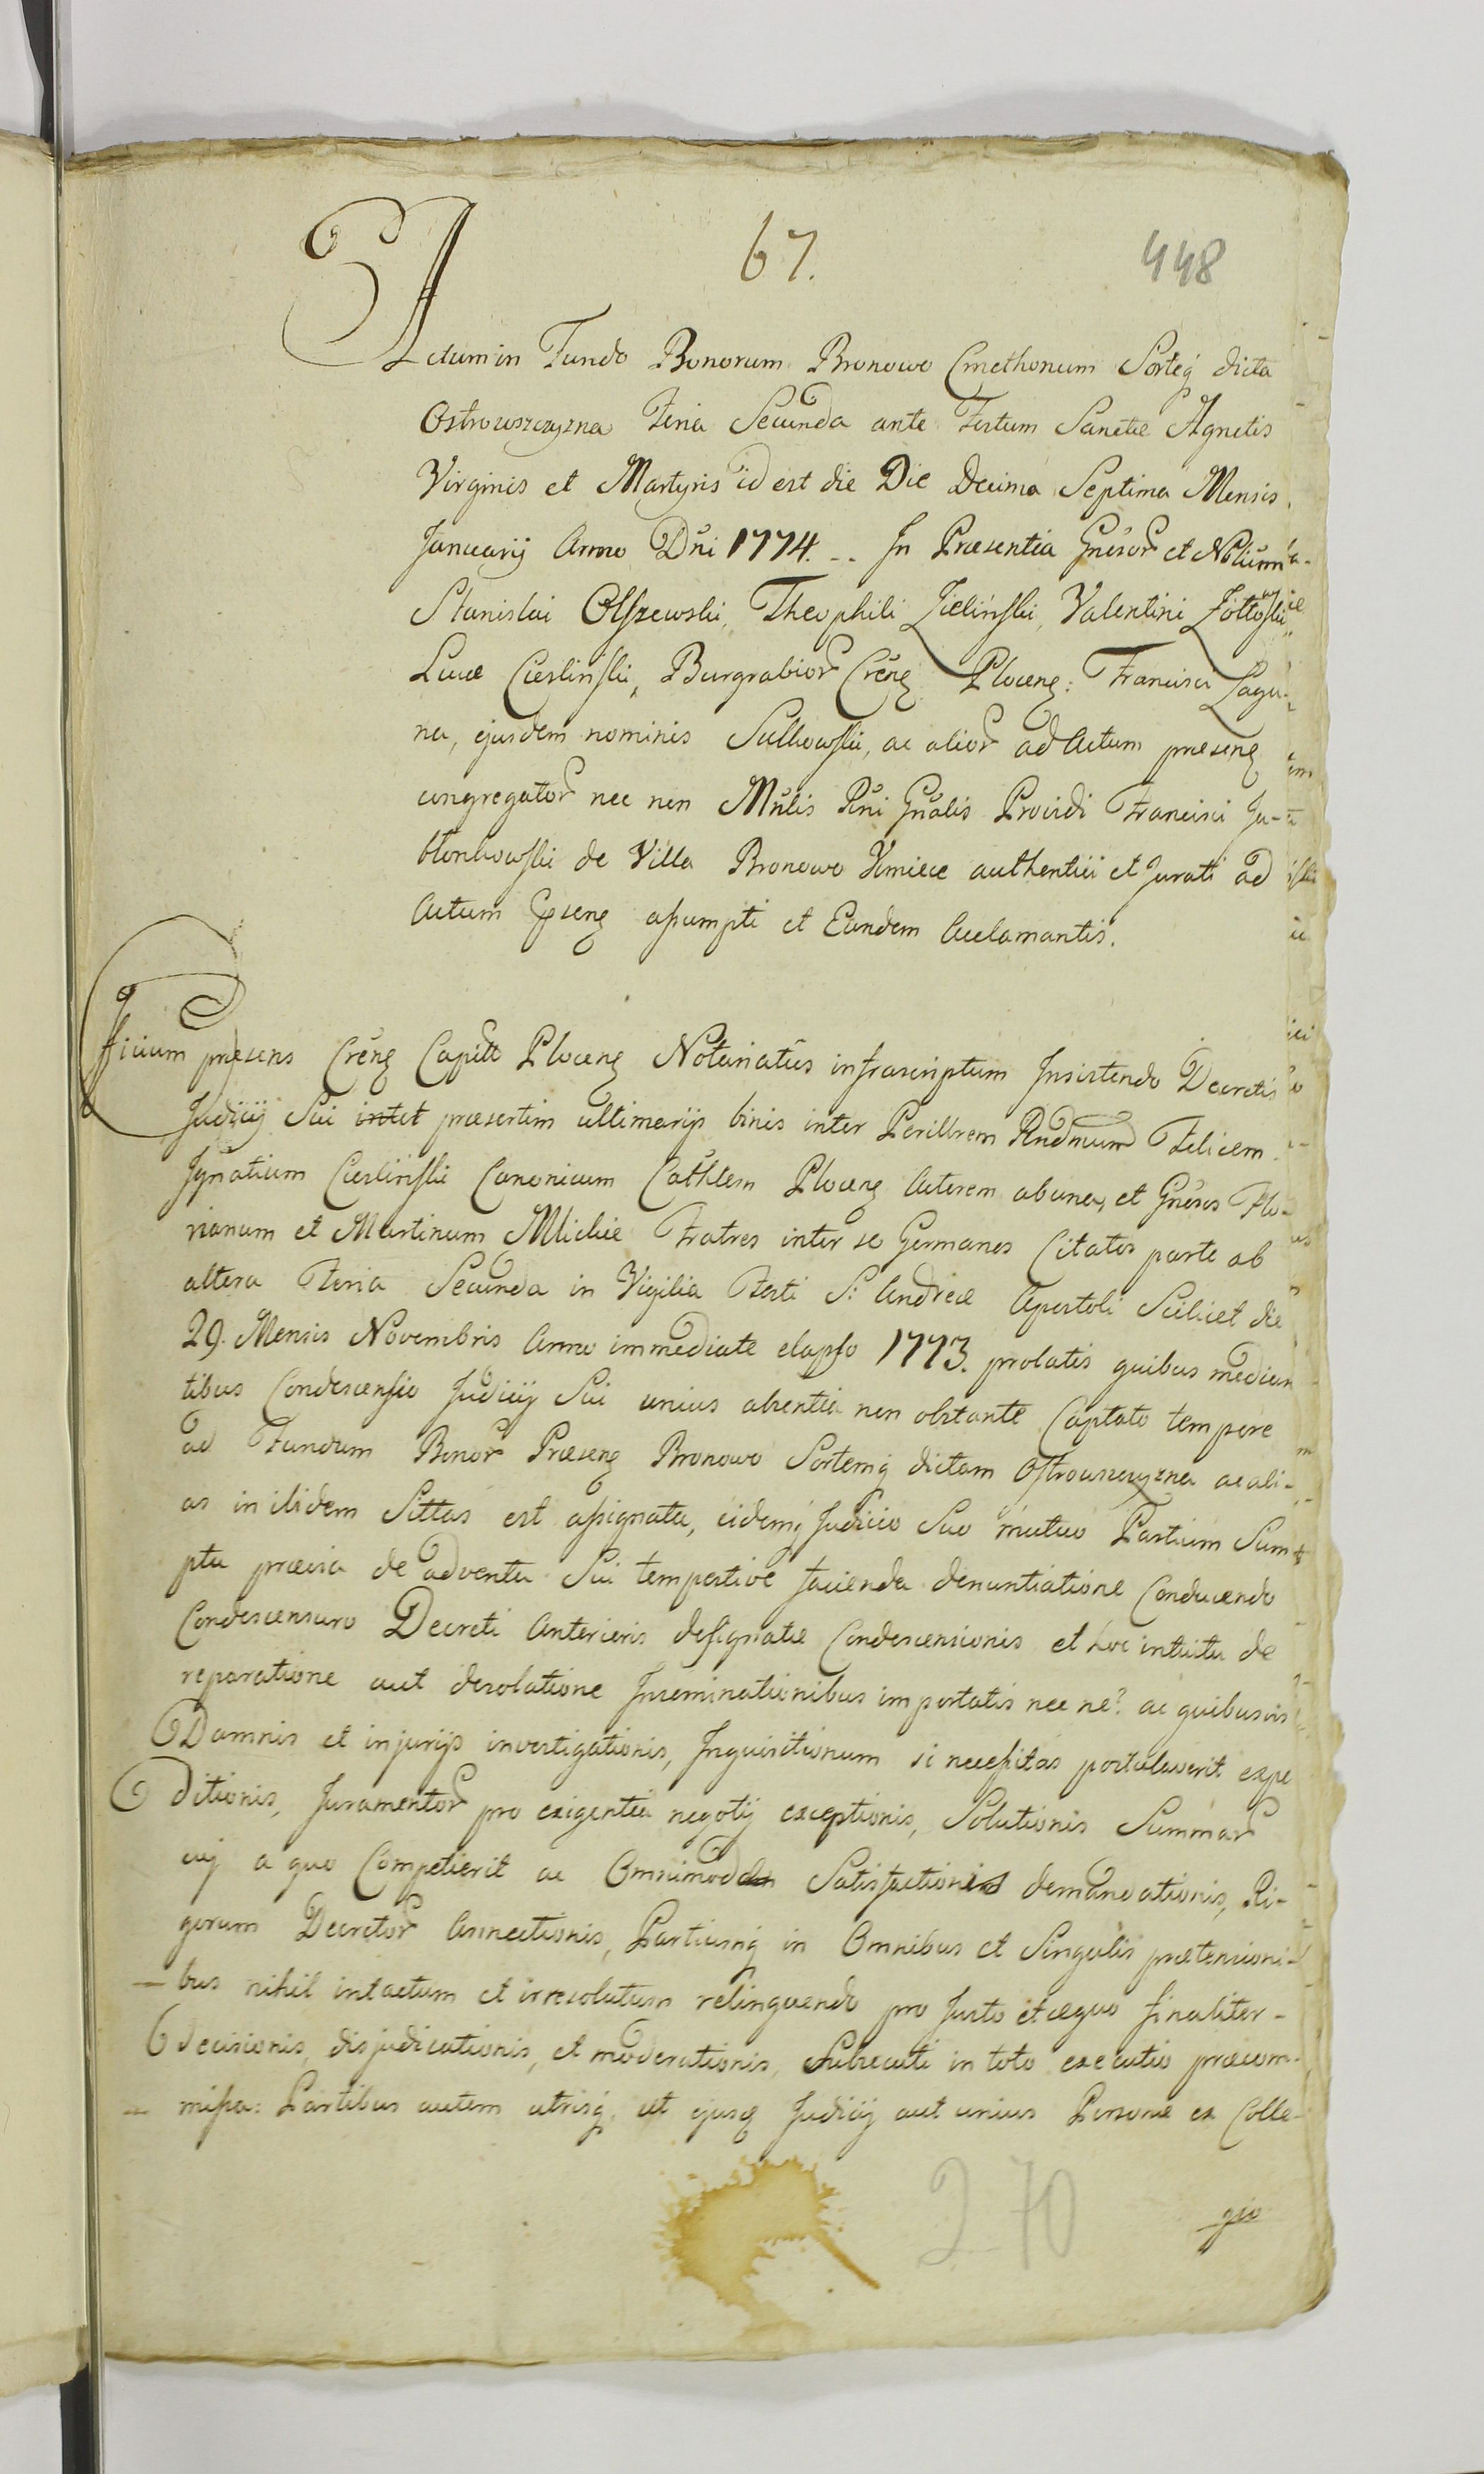 67.
448
Actum in Fundo Bonorum Bronowo Cmethonum Sorteq dicta
Ostrowszczyzna Feria Secunda ante Festum Sanctæ Agnetis
Virginis et Martyris id est die Die Decima Septima Mensis
Januarij Anno Dni 1774. -- In Præsentia Gnesor et Nobilium
Stanislai Olszewski, Theophili Zielinski, Valentini Żółtowski
Lucæ Cieslinski, Burgrabior Crĕng Plocens: Francisci Lagu-
na, ejusdem nominis Sulkowski, ac alior ad Actum præsens
congregator nec non Mnlis Rni Gnalis Providi Francisci Ja-
błonkowski de Villa Bronowo Kmiece authentici et Jurati ad
Actum ppsens assumpti et Eundem acclamantis.
Officium præsens Crens Capitt Plocens Notariatus infrascriptum Insistendo Decretis
Judicij Sui intet præsertim ultimarijs binis inter Perillrem Rndmum Felicem
Ignatium Cieslinski Canonicum Cathlem Plocens Actorem ab una, et Gnesos Flo-
rianum et Martinum Mlickie Fratres inter se Germanos Citatos parte ab
altera Feria Secunda in Vigilia Festi S: Andreæ Apostoli Scilicet die
29. Mensis Novembris Anno immediate elapso 1773. prolatis quibus median
tibus Condescensio Judicij Sui unius absentia non obstante Captato tempore
ad Fundum Bonor Præsens Bronowo Sortemq dictam Ostrowszczyzna ac ali-
as inibidem Sittas est assignata, eidemq Judicio Suo mutuo Partium Sum
ptu prævia de adventu Sui tempestive facienda denuntiatione Conducendo
Condescensuro Decreti Anterioris designatæ Condescensionis et hoc intuitu de
reparatione aut desolatione Inseminationibus importatis nec ne? ac quibusvis
Damnis et injurijs investigationis, Inquisitionum si necessitas postulaverit expe
ditionis, Juramentor pro exigentia negotij exceptionis, Solutionis Summar
cuj a quo Competierit ac Omnimodæ Satisfactionis demandationis, Ri-
gorum Decretor Annectionis, Partiumq in Omnibus et Singulis prætensioni-
bus nihil intactum et irresolutum relinquendo pro Justo et æquo finaliter-
decisionis, disjudicationis, et moderationis, Subsecuti in toto executio præcom-
missa: Partibus autem utrisq, ut ejusq Judicij aut unius Personæ ex Colle-
gio
270